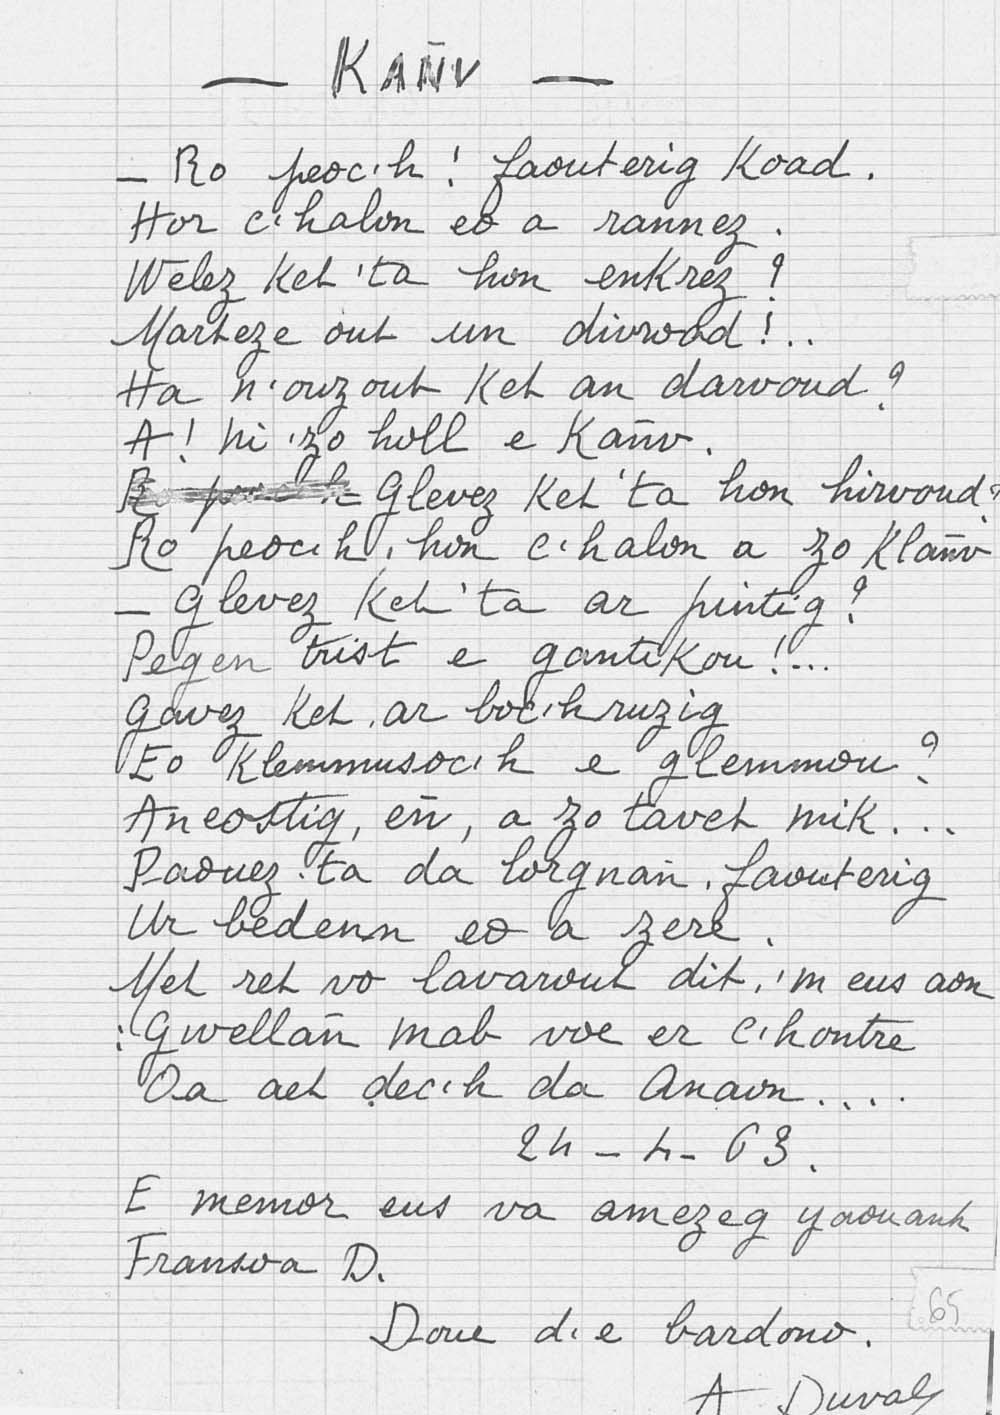 — KAÑV —
— Ro peoc'h ! faouterig Koad.
Hor c'halon eo a rannez.
Welez Ket 'ta hon enKrez ?
Marteze out un divroad !..
Ha n'ouzout Ket an darvoud ?
A ! Ni 'zo holl e Kañv.
Glevez Ket 'ta hon hirvoud ?
Ro peoc'h, hon c'halon a zo Klañv
— Glevez Ket 'ta ar pintig ?
Pegen trist e gantiKou !...
Gavez Ket, ar boc'hruzig
Eo Klemmusoc'h e glemmou ?
An eostig, eñ, a zo tavet mik...
Paouez 'ta da lorgnañ, faouterig
Ur bedenn eo a zere.
Met ret vo lavarout dit, 'm eus aon
: Gwellañ mab voe er c'hontre
Oa aet dec'h da Anaon....
24 - 4 - 63.
E memor eus va amezeg yaouank
Fransoa D.
Doue d'e bardono.
65
A Duval